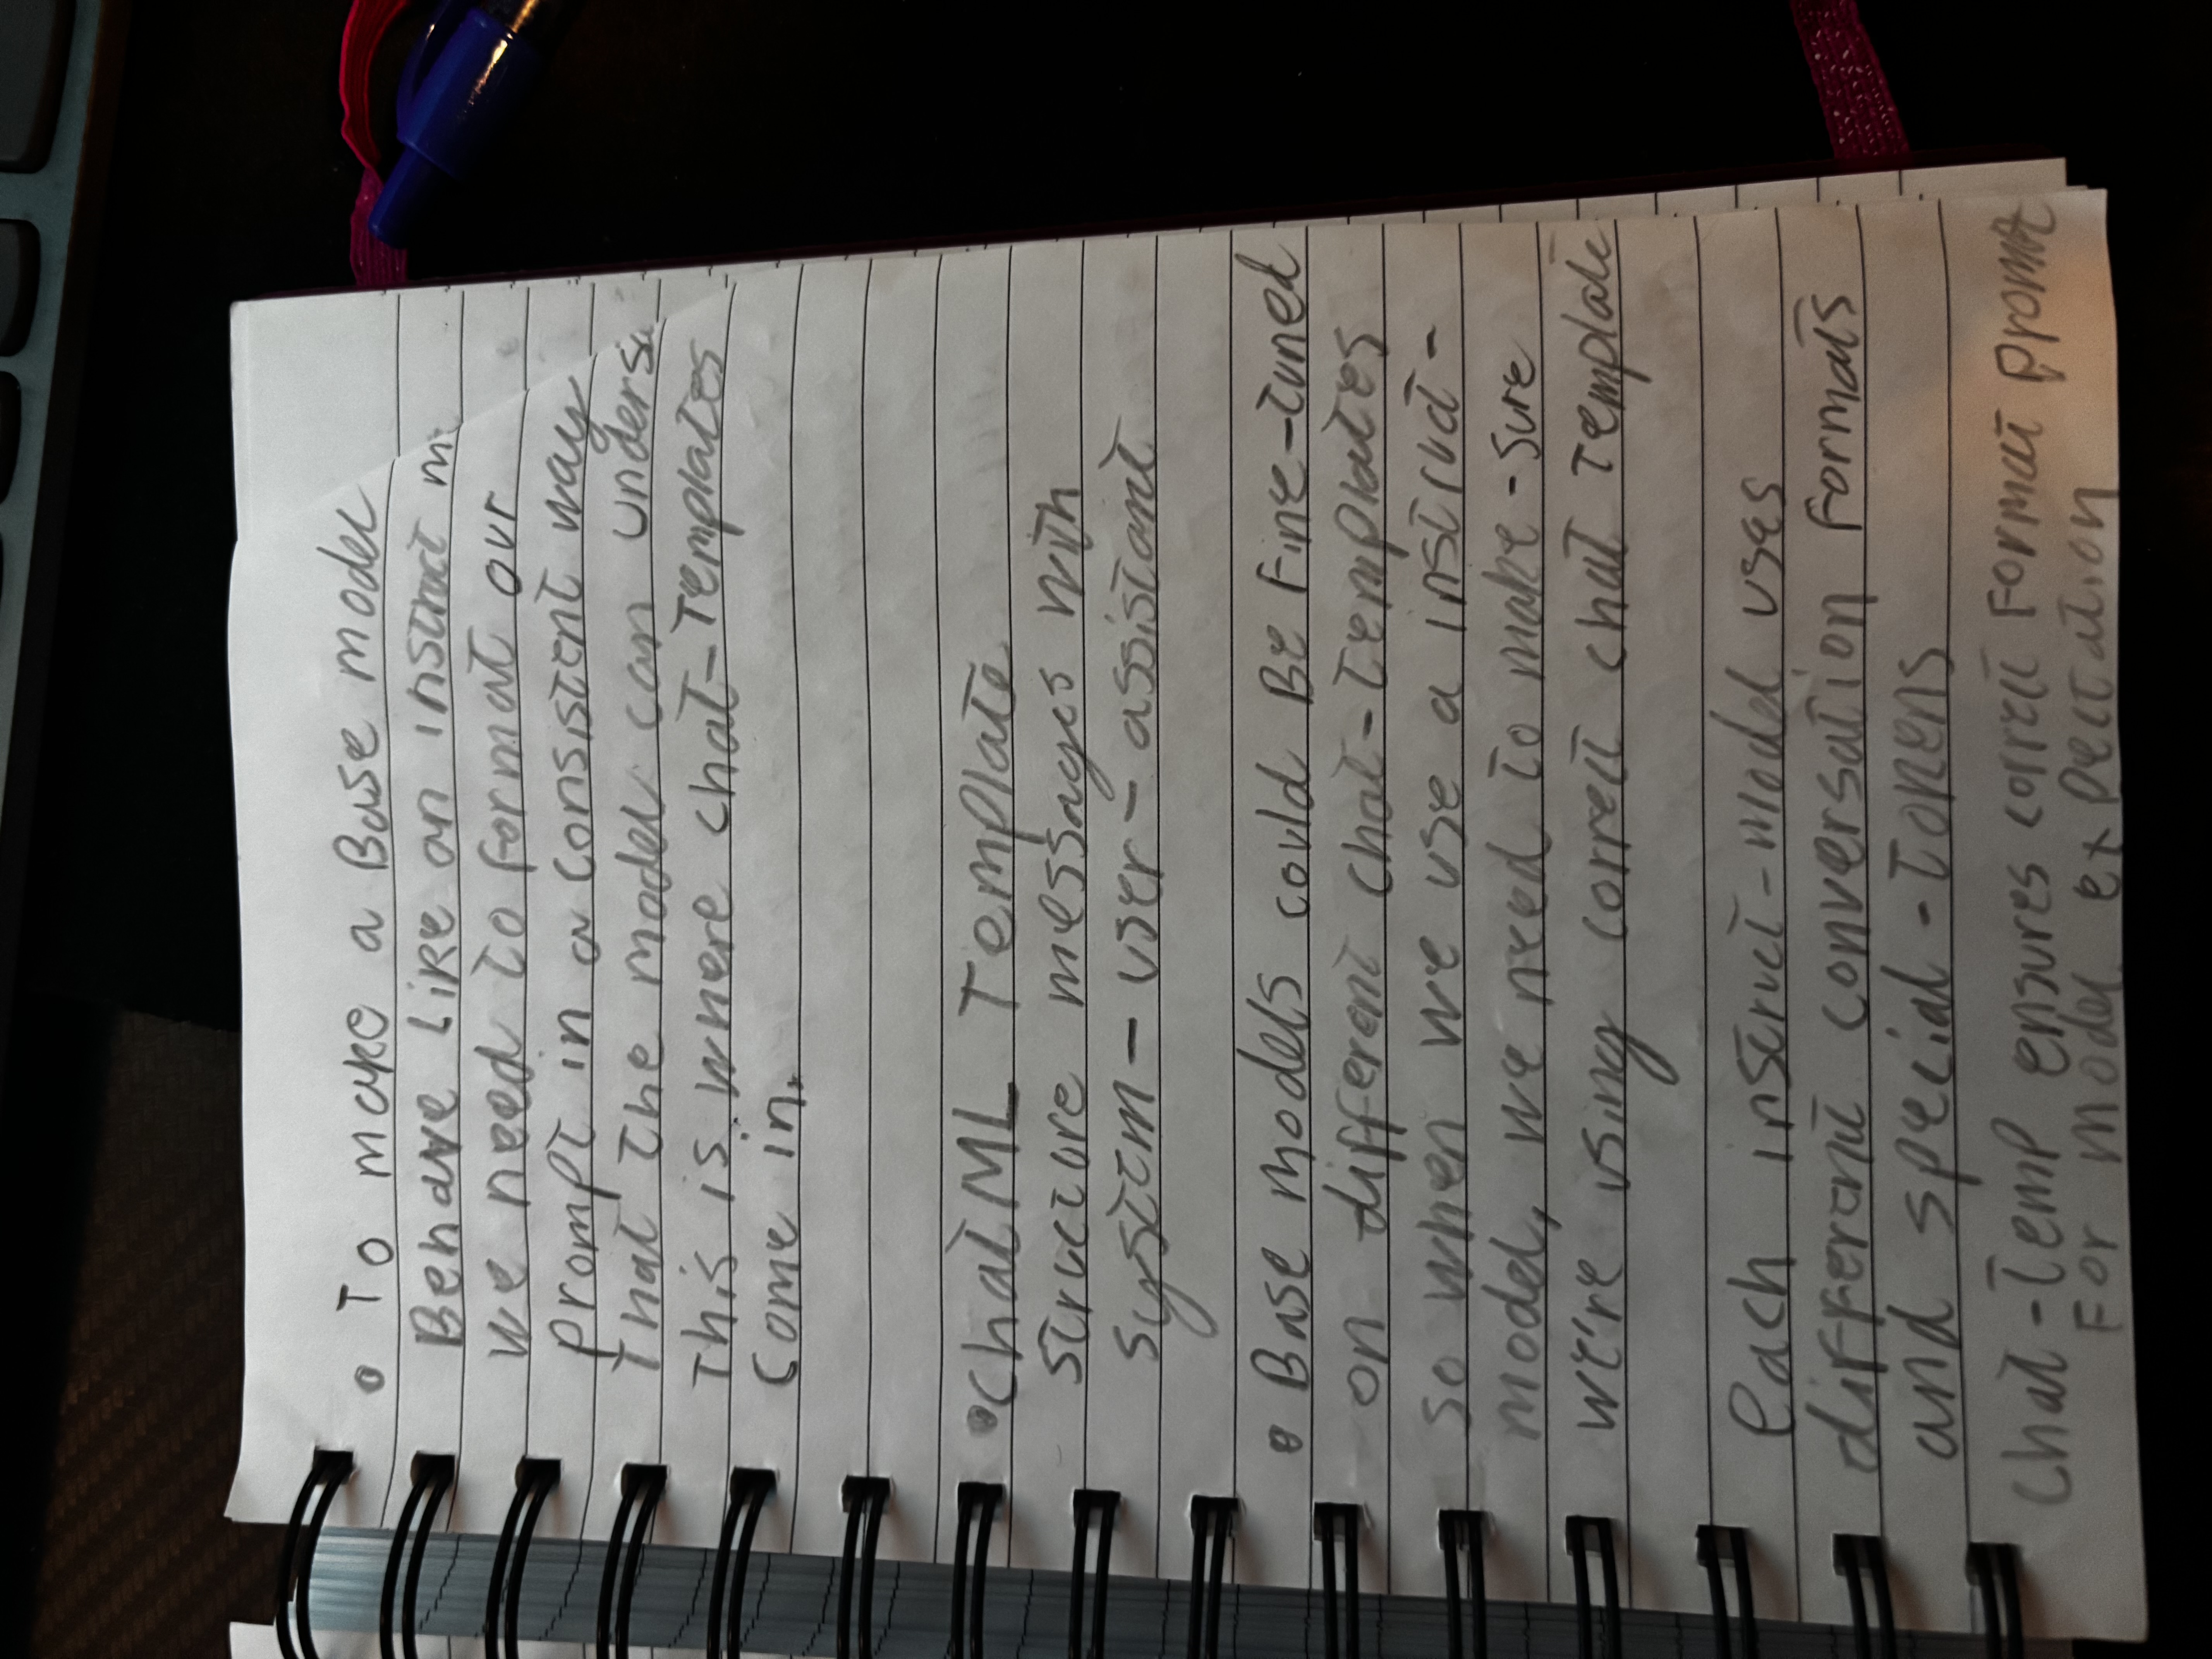 • To make a Base model
Behave like an instruct
we need to format our
prompt in a consistent way
that the model can
This is where chat-templates
come in.
• ChatML Template
structure messages with
system - user - assistant
• Base models could Be Fine-tuned
on different chat-templates
so when we use a instruct-
model, we need to make-sure
we're using correct chat template
each instruct-model uses
different conversation formats
and special-tokens
chat-temp ensures correct format prompt
For model expectation